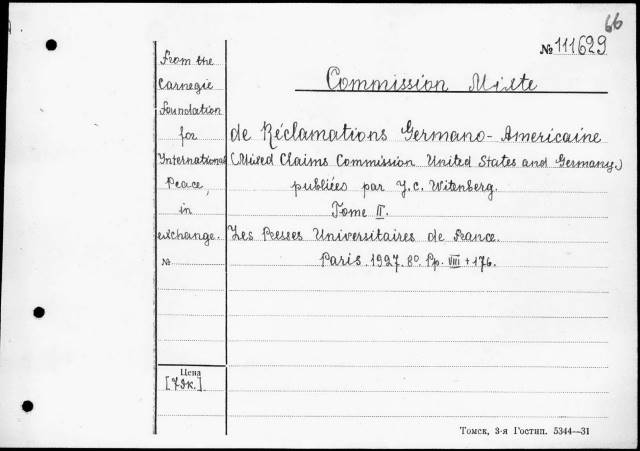 66
№ 111629
Commission Mixte
de Réclamations Germano-Americaine
(Mixed Claims Commission United States and Germany.)
publiées par J. C. Witenberg.
Tome II.
Les Presses Universitaires de France.
Paris. 1927. 8º. Pp. VIII + 176.
From the
Carnegie
Foundation
for
International
Peace,
in
exchange.
№
Цена
Томск, 3-я Гостип. 5344—31